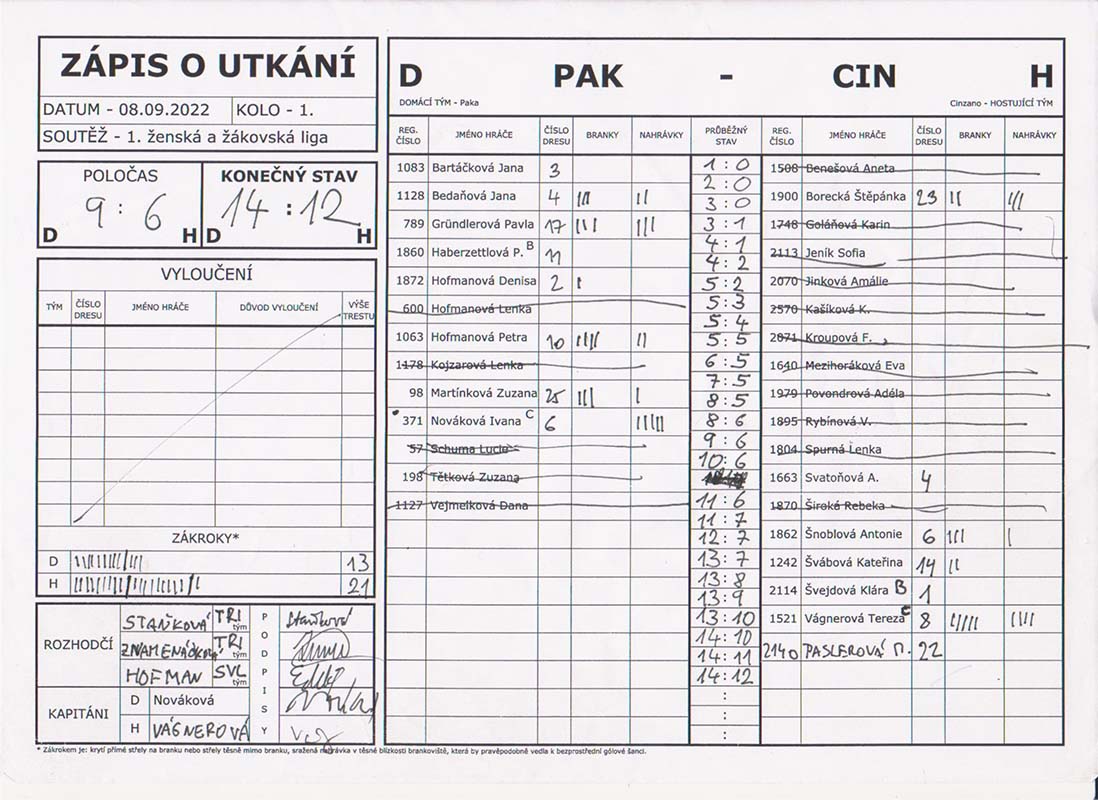 ZÁPIS O UTKÁNÍ
DATUM - 08.09.2022 KOLO - 1.
SOUTĚŽ - 1. ženská a žákovská liga
POLOČAS KONEČNÝ STAV
9 : 6 14 : 12
D H D H
VYLOUČENÍ
TÝM ČÍSLO DRESU JMÉNO HRÁČE DŮVOD VYLOUČENÍ VÝŠE TRESTU
ZÁKROKY*
D 13
H 21
ROZHODČÍ
STAŇKOVÁ TRI tým
ZNAMENÁČKOVÁ TRI tým
HOFMAN SVL tým
KAPITÁNI
D Nováková
H VÁGNEROVÁ
PODPISY
Staňková
D PAK - CIN H
DOMÁCÍ TÝM - Paka Cinzano - HOSTUJÍCÍ TÝM
REG. ČÍSLO JMÉNO HRÁČE ČÍSLO DRESU BRANKY NAHRÁVKY PRŮBĚŽNÝ STAV REG. ČÍSLO JMÉNO HRÁČE ČÍSLO DRESU BRANKY NAHRÁVKY
1083 Bartáčková Jana 3
1128 Bedaňová Jana 4 III II
789 Gründlerová Pavla 17 III III
1860 Haberzettlová P. B 11
1872 Hofmanová Denisa 2 I
600 Hofmanová Lenka
1063 Hofmanová Petra 10 IIII II
1178 Kojzarová Lenka
98 Martínková Zuzana 25 III I
371 Nováková Ivana C 6 IIIII
57 Schuma Lucie
198 Tětková Zuzana
1127 Vejmelková Dana
1 : 0
2 : 0
3 : 0
3 : 1
4 : 1
4 : 2
5 : 2
5 : 3
5 : 4
5 : 5
6 : 5
7 : 5
8 : 5
8 : 6
9 : 6
10 : 6
11 : 6
11 : 7
12 : 7
13 : 7
13 : 8
13 : 9
13 : 10
14 : 10
14 : 11
14 : 12
:
:
:
1508 Benešová Aneta
1900 Borecká Štěpánka 23 II III
1748 Goláňová Karin
2113 Jeník Sofia
2070 Jinková Amálie
2570 Kašíková K.
2071 Kroupová F.
1640 Mezihoráková Eva
1979 Povondrová Adéla
1895 Rybínová V.
1804 Spurná Lenka
1663 Svatoňová A. 4
1870 Široká Rebeka
1862 Šnoblová Antonie 6 III I
1242 Švábová Kateřina 14 II
2114 Švejdová Klára B 1
1521 Vágnerová Tereza C 8 IIIII IIII
2140 PASLEROVÁ M. 22
* Zákrokem je: krytí přímé střely na branku nebo střely těsně mimo branku, sražená nahrávka v těsné blízkosti brankoviště, která by pravěpodobně vedla k bezprostřední gólové šanci.